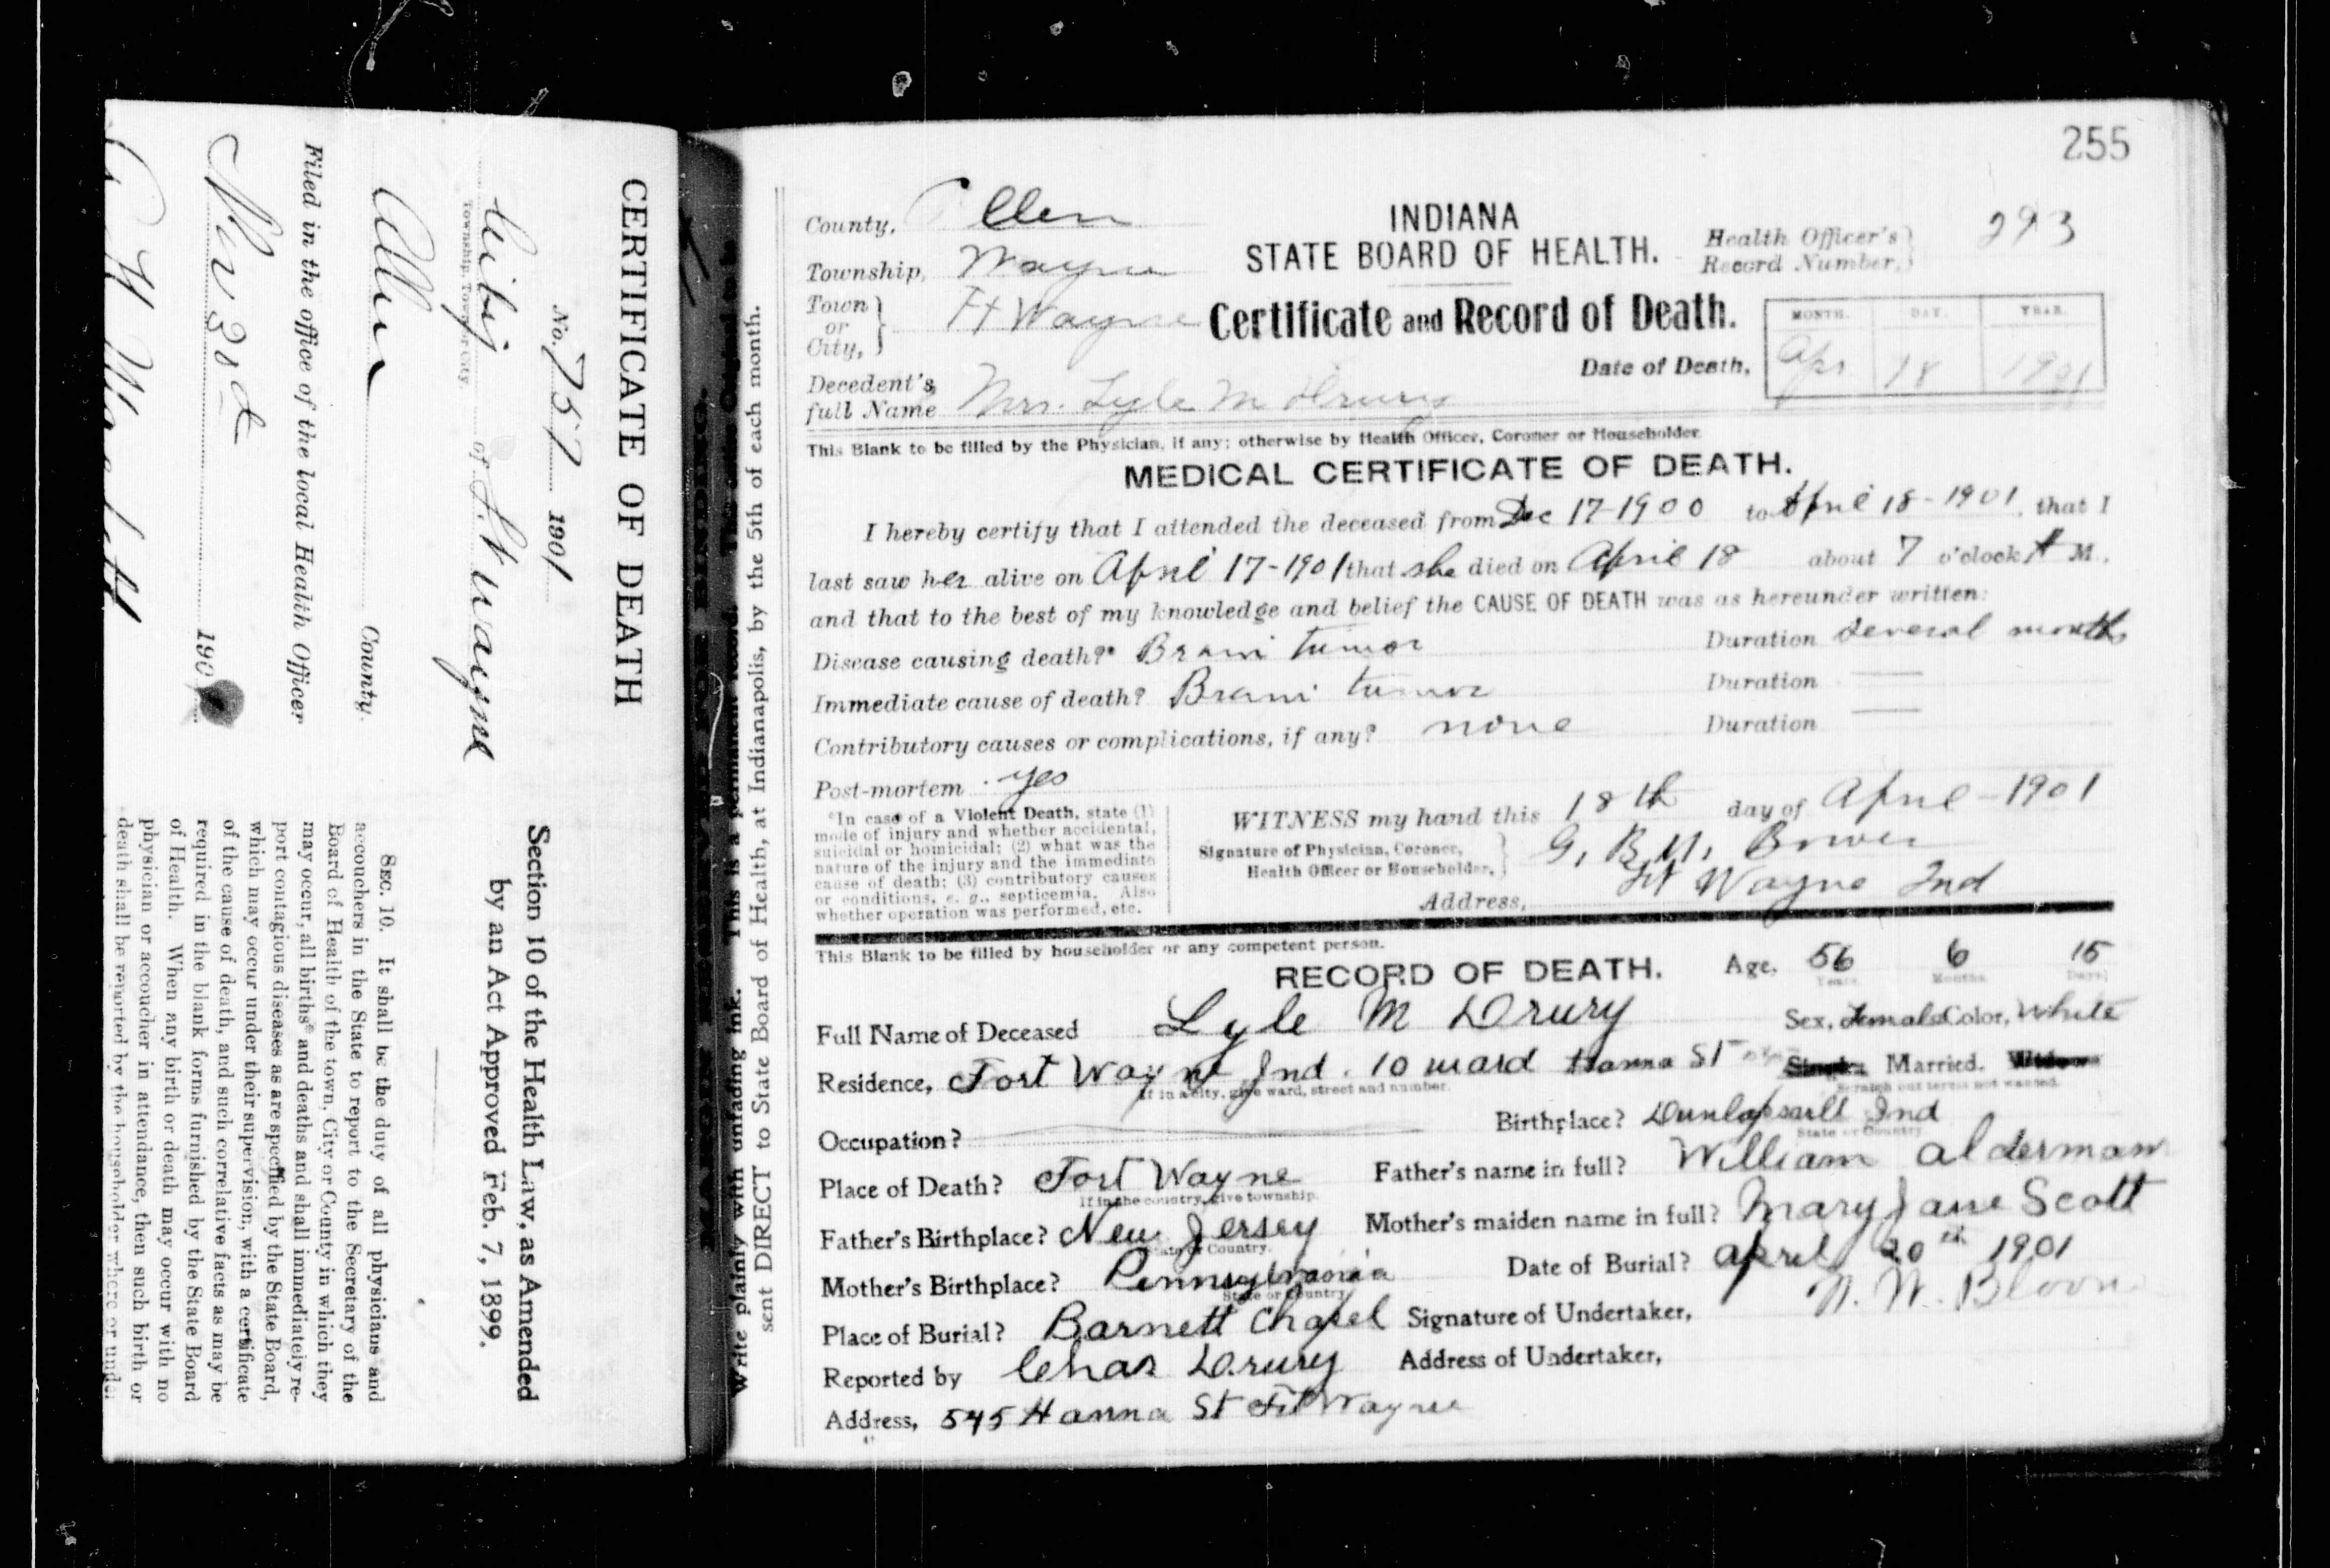 CERTIFICATE OF DEATH
No. 757 1901
City of Ft Wayne
Township, Town or City.
Allen County.
Filed in the office of the local Health Officer
190
Section 10 of the Health Law, as Amended
by an Act Approved Feb. 7, 1899.
SEC. 10. It shall be the duty of all physicians and
accouchers in the State to report to the Secretary of the
Board of Health of the town, City or County in which they
may occur, all births* and deaths and shall immediately re-
port contagious diseases as are specified by the State Board,
which may occur under their supervision, with a certificate
of the cause of death, and such correlative facts as may be
required in the blank forms furnished by the State Board
of Health. When any birth or death may occur with no
physician or accoucher in attendance, then such birth or
death shall be reported by the householder where or under
Write plainly with unfading ink. This is a permanent record.
sent DIRECT to State Board of Health, at Indianapolis, by the 5th of each month.
255
County, Allen
INDIANA
STATE BOARD OF HEALTH.
Health Officer's Record Number, 293
Township, Wayne
Town or City, Ft Wayne
Certificate and Record of Death.
MONTH. DAY. YEAR.
Date of Death, Apr 18 1901
Decedent's full Name Mrs. Lyle M Drury
This Blank to be filled by the Physician, if any; otherwise by Health Officer, Coroner or Householder.
MEDICAL CERTIFICATE OF DEATH.
I hereby certify that I attended the deceased from Dec 17-1900 to April 18-1901, that I
last saw her alive on April 17-1901 that she died on April 18 about 7 o'clock A M.,
and that to the best of my knowledge and belief the CAUSE OF DEATH was as hereunder written:
Disease causing death?* Brain tumor Duration Several months
Immediate cause of death? Brain tumor Duration —
Contributory causes or complications, if any? none Duration —
Post-mortem yes
*In case of a Violent Death, state (1)
mode of injury and whether accidental,
suicidal or homicidal; (2) what was the
nature of the injury and the immediate
cause of death; (3) contributory causes
or conditions, e. g., septicemia. Also
whether operation was performed, etc.
WITNESS my hand this 18th day of April-1901
Signature of Physician, Coroner,
Health Officer or Householder, G. B. M. Bower
Address, Ft Wayne Ind
This Blank to be filled by householder or any competent person.
RECORD OF DEATH.
Age, 56 Years 6 Months 15 Days
Full Name of Deceased Lyle M Drury Sex, Female Color, White
Residence, Fort Wayne Ind. 10 ward Hanna St Single Married. Widow
If in a city, give ward, street and number. Scratch out terms not wanted.
Occupation? Birthplace? Ind
State or Country.
Place of Death? Fort Wayne Father's name in full? William Alderman
If in the country, give township.
Father's Birthplace? New Jersey Mother's maiden name in full? Mary Jane Scott
State or Country.
Mother's Birthplace? Pennsylvania Date of Burial? April 20th 1901
State or Country
Place of Burial? Barnett Chapel Signature of Undertaker,
Reported by Chas Drury Address of Undertaker,
Address, 545 Hanna St Ft Wayne